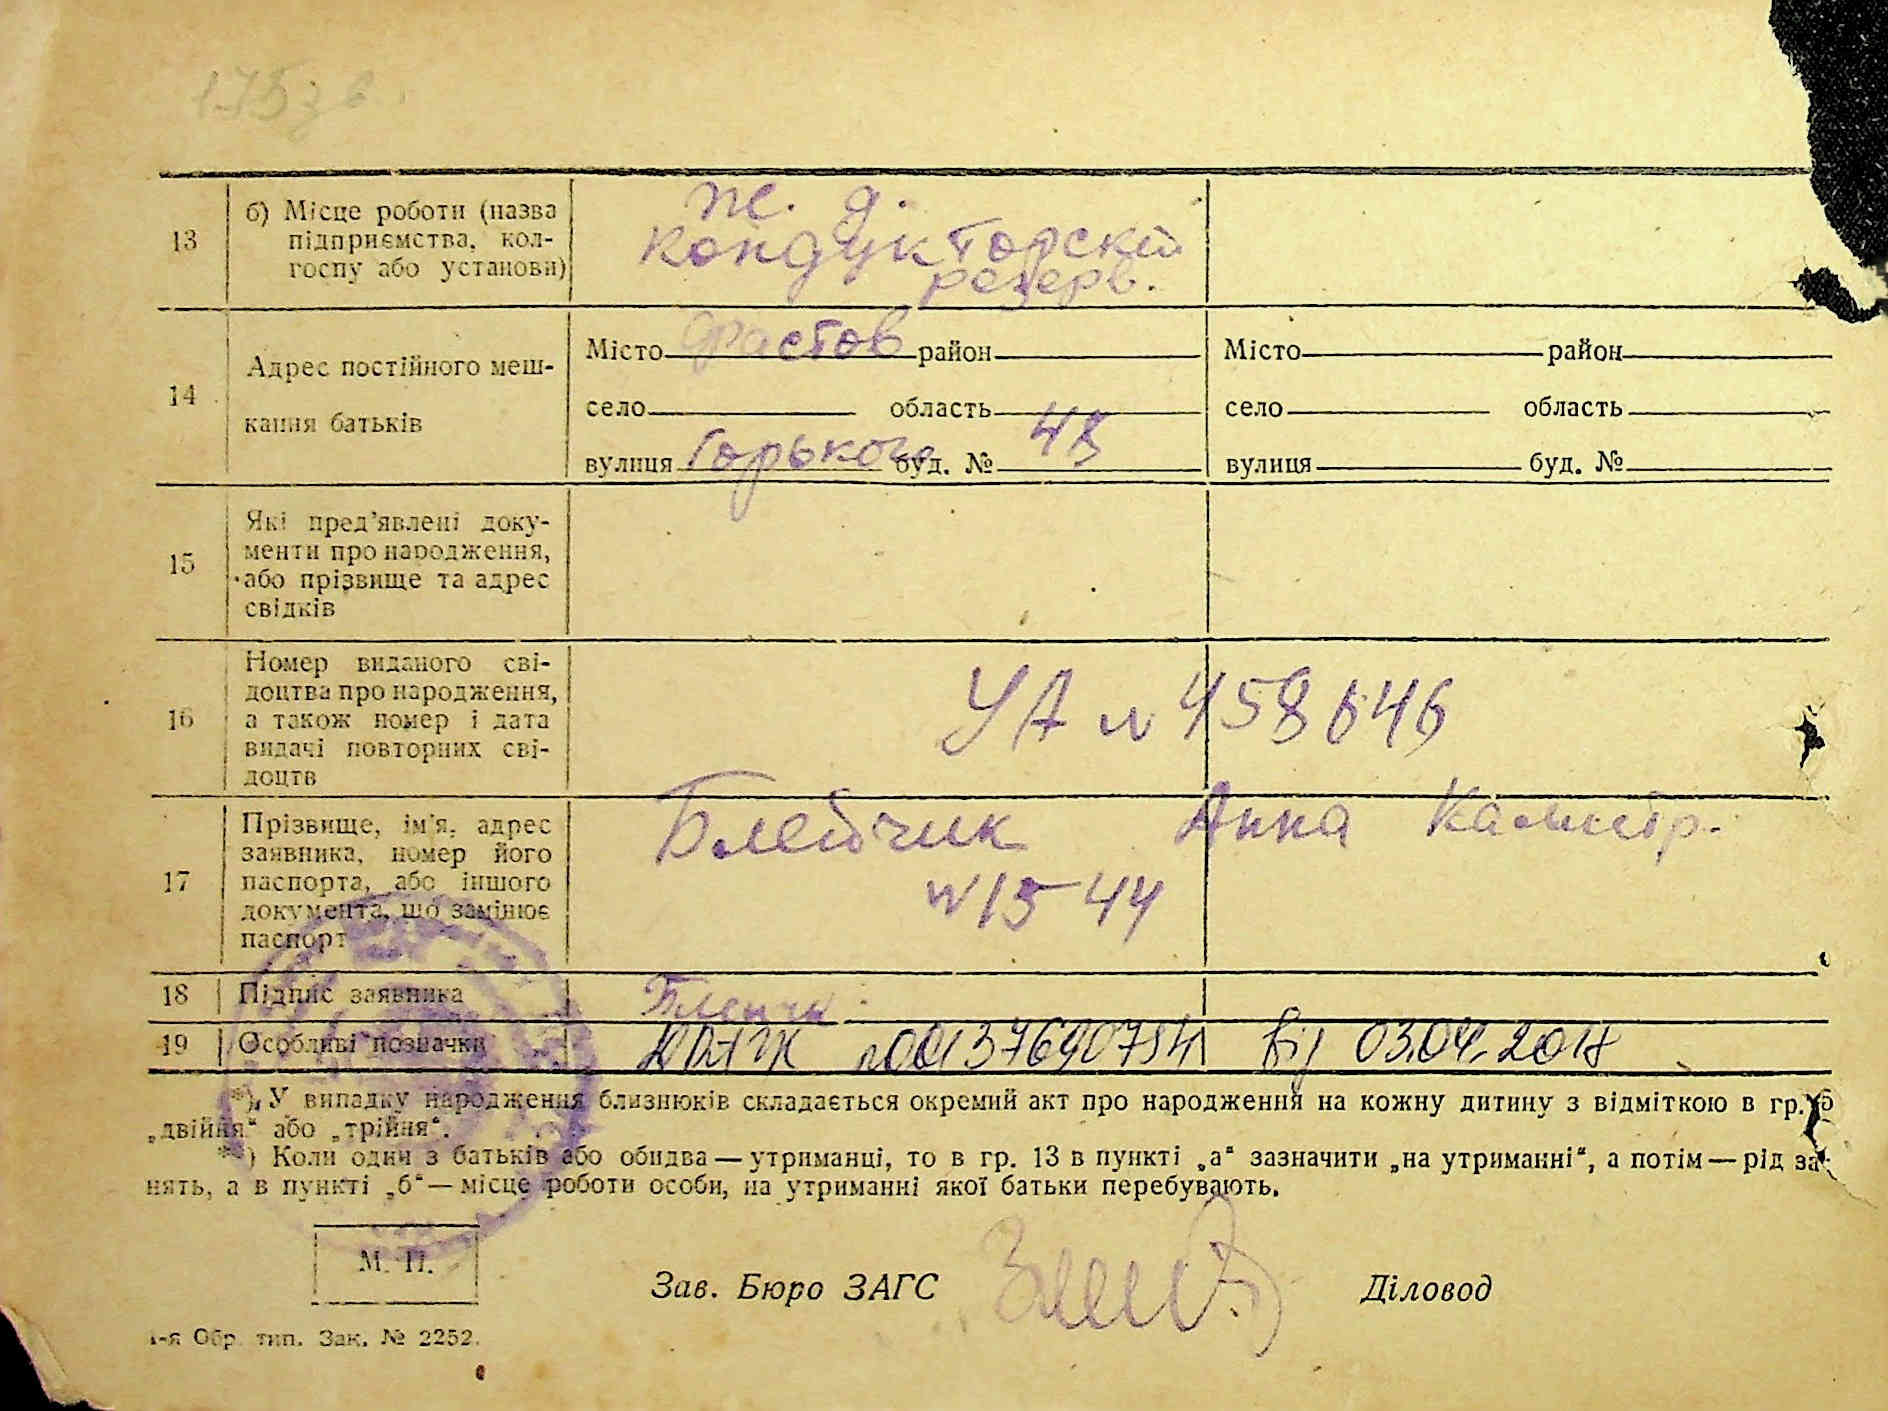 175 зв.
13
б) Місце роботи (назва
підприємства, кол-
госпу або установи)
ж. д.
кондукторский
резерв.
14
Адрес постійного меш-
кання батьків
Місто Фастов район Місто район
село область село область
вулиця Горького буд. № 43 вулиця буд. №
15
Які пред'явлені доку-
менти про народження,
або прізвище та адрес
свідків
16
Номер виданого сві-
доцтва про народження,
а також номер і дата
видачі повторних сві-
доцтв
УА № 458646
17
Прізвище, ім'я, адрес
заявника, номер його
паспорта, або іншого
документа, що замінює
паспорт
Блейчик Анна
№ 1544
18 Підпис заявника
19 Особливі позначки
від 03.04.2018
*) У випадку народження близнюків складається окремий акт про народження на кожну дитину з відміткою в гр. 5
„двійня“ або „трійня“.
**) Коли один з батьків або обидва — утриманці, то в гр. 13 в пункті „а“ зазначити „на утриманні“, а потім — рід за-
нять, а в пункті „б“ — місце роботи особи, на утриманні якої батьки перебувають.
М. П.
Зав. Бюро ЗАГС Діловод
1-я Обр. тип. Зак. № 2252.